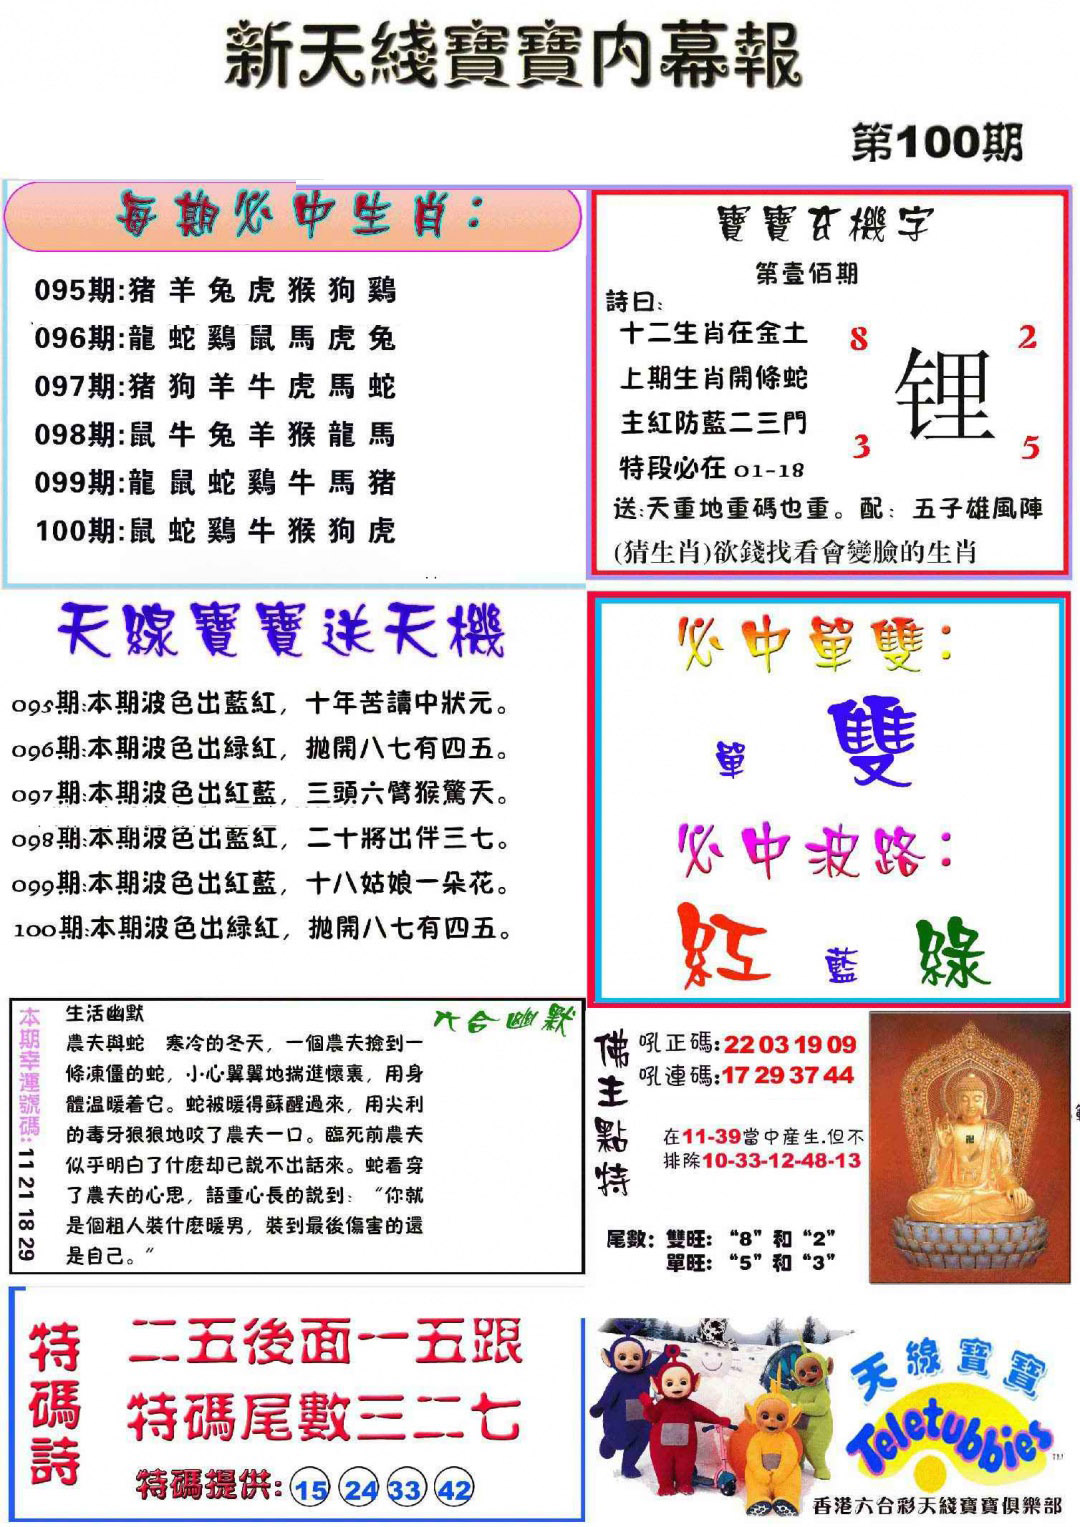 新天綫寶寶内幕報
第100期
每期必中生肖：
095期:猪羊兔虎猴狗鷄
096期:龍蛇鷄鼠馬虎兔
097期:猪狗羊牛虎馬蛇
098期:鼠牛兔羊猴龍馬
099期:龍鼠蛇鷄牛馬猪
100期:鼠蛇鷄牛猴狗虎
寶寶玄機字
第壹佰期
詩曰:
十二生肖在金土
上期生肖開條蛇
主紅防藍二三門
特段必在 01-18
8 2
锂
3 5
送:天重地重碼也重。配：五子雄風陣
(猜生肖)欲錢找看會變臉的生肖
天線寶寶送天機
095期:本期波色出藍紅，十年苦讀中狀元。
096期:本期波色出緑紅，抛開八七有四五。
097期:本期波色出紅藍，三頭六臂猴驚天。
098期:本期波色出藍紅，二十將出伴三七。
099期:本期波色出紅藍，十八姑娘一朵花。
100期:本期波色出緑紅，抛開八七有四五。
必中單雙：
單 雙
必中波路：
紅 藍 綠
本期幸運號碼: 11 21 18 29
生活幽默
六合幽默
農夫與蛇 寒冷的冬天，一個農夫撿到一
條凍僵的蛇，小心翼翼地揣進懷裏，用身
體温暖着它。蛇被暖得蘇醒過來，用尖利
的毒牙狠狠地咬了農夫一口。臨死前農夫
似乎明白了什麽却已説不出話來。蛇看穿
了農夫的心思，語重心長的説到：“你就
是個粗人裝什麽暖男，裝到最後傷害的還
是自己。”
佛主點特
吼正碼:22 03 19 09
吼連碼:17 29 37 44
在11-39當中産生.但不
排除10-33-12-48-13
尾數：雙旺：“8”和“2”
單旺：“5”和“3”
特碼詩
二五後面一五跟
特碼尾數三二七
特碼提供: 15 24 33 42
天線寶寶
Teletubbies
TM
香港六合彩天綫寶寶俱樂部